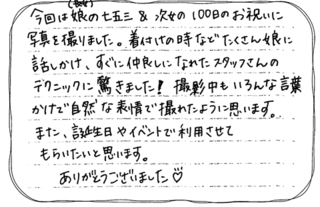 (長女)
今回は娘の七五三 & 次女の100日のお祝いに
写真を撮りました。着付けの時などたくさん娘に
話しかけ、すぐに仲良しになれたスタッフさんの
テクニックに驚きました! 撮影中もいろんな言葉
かけで自然な表情で撮れたように思います。
また、誕生日やイベントで利用させて
もらいたいと思います。
ありがとうございました♡